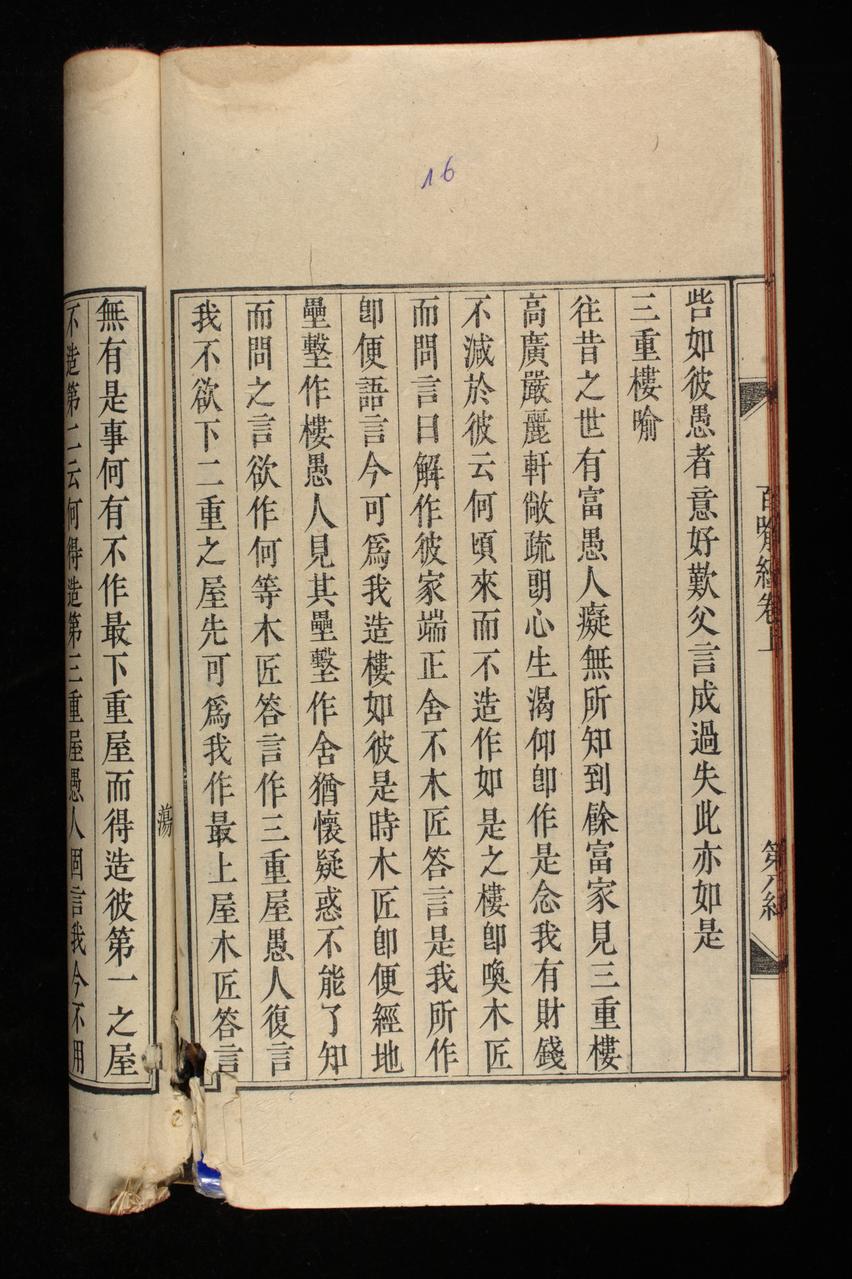 16
百喻經卷上
呰如彼愚者意好歎父言成過失此亦如是
三重樓喻
往昔之世有富愚人癡無所知到餘富家見三重樓
高廣嚴麗軒敞疏朗心生渴仰卽作是念我有財錢
不減於彼云何頃來而不造作如是之樓卽喚木匠
而問言曰解作彼家端正舍不木匠答言是我所作
卽便語言今可爲我造樓如彼是時木匠卽便經地
壘墼作樓愚人見其壘墼作舍猶懷疑惑不能了知
而問之言欲作何等木匠答言作三重屋愚人復言
我不欲下二重之屋先可爲我作最上屋木匠答言
蕩
無有是事何有不作最下重屋而得造彼第一之屋
不造第二云何得造第三重屋愚人固言我今不用